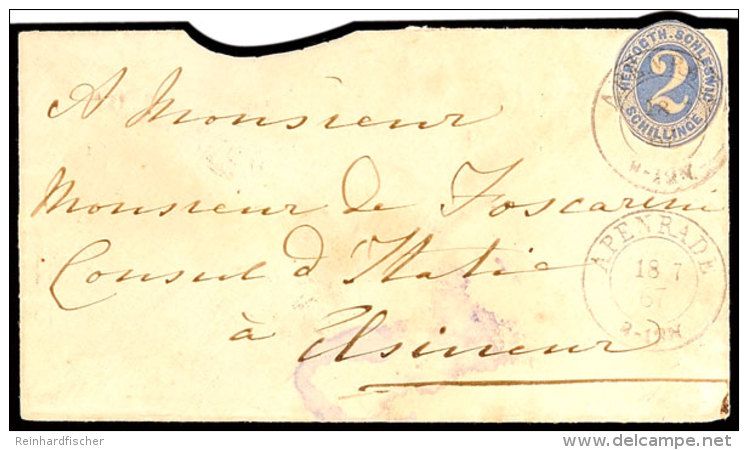 HERZOGTH. SCHLESWIG
2
SCHILLINGE
A Monsieur
Monsieur de Foscarini
Consul d'Italie
à Elsineur
APENRADE
18 7
67
Reinhardfischer
delcampe.net